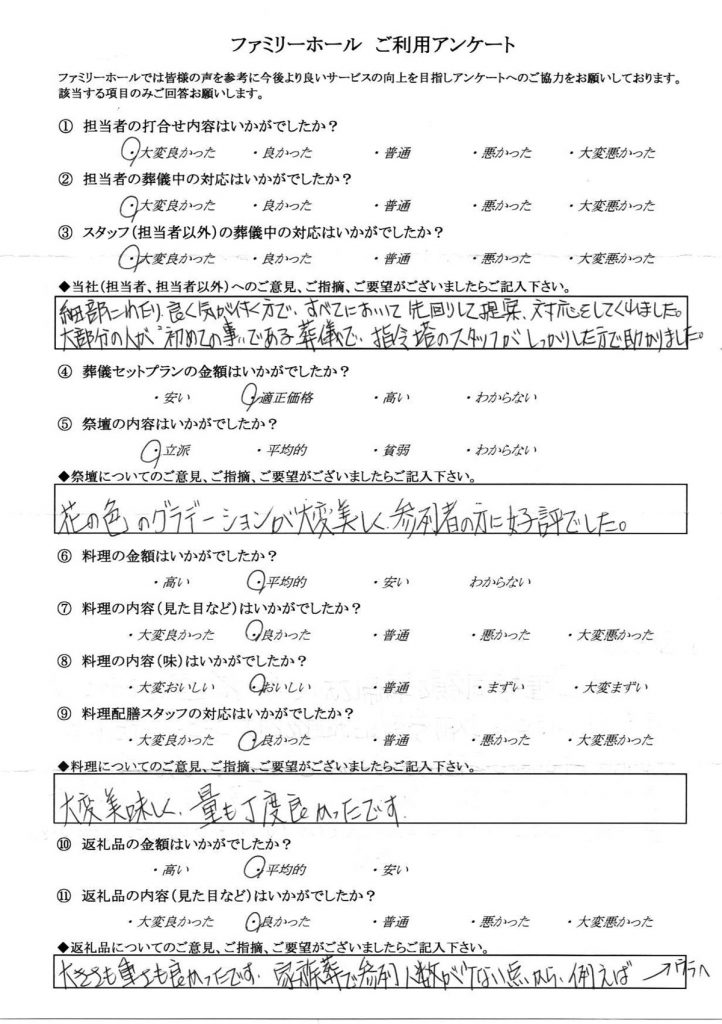 ファミリーホール ご利用アンケート
ファミリーホールでは皆様の声を参考に今後より良いサービスの向上を目指しアンケートへのご協力をお願いしております。
該当する項目のみご回答お願いします。
① 担当者の打合せ内容はいかがでしたか？
・大変良かった ・良かった ・普通 ・悪かった ・大変悪かった
② 担当者の葬儀中の対応はいかがでしたか？
・大変良かった ・良かった ・普通 ・悪かった ・大変悪かった
③ スタッフ(担当者以外)の葬儀中の対応はいかがでしたか？
・大変良かった ・良かった ・普通 ・悪かった ・大変悪かった
◆当社(担当者、担当者以外)へのご意見、ご指摘、ご要望がございましたらご記入下さい。
細部にわたり、良く気が付く方で、すべてにおいて先回りして提案、対応をしてくれました。
大部分の人が"初めての事"である葬儀で、指令塔のスタッフがしっかりした方で助かりました。
④ 葬儀セットプランの金額はいかがでしたか？
・安い ・適正価格 ・高い ・わからない
⑤ 祭壇の内容はいかがでしたか？
・立派 ・平均的 ・貧弱 ・わからない
◆祭壇についてのご意見、ご指摘、ご要望がございましたらご記入下さい。
花の色のグラデーションが大変美しく、参列者の方に好評でした。
⑥ 料理の金額はいかがでしたか？
・高い ・平均的 ・安い わからない
⑦ 料理の内容(見た目など)はいかがでしたか？
・大変良かった ・良かった ・普通 ・悪かった ・大変悪かった
⑧ 料理の内容(味)はいかがでしたか？
・大変おいしい ・おいしい ・普通 ・まずい ・大変まずい
⑨ 料理配膳スタッフの対応はいかがでしたか？
・大変良かった ・良かった ・普通 ・悪かった ・大変悪かった
◆料理についてのご意見、ご指摘、ご要望がございましたらご記入下さい。
大変美味しく、量も丁度良かったです。
⑩ 返礼品の金額はいかがでしたか？
・高い ・平均的 ・安い
⑪ 返礼品の内容(見た目など)はいかがでしたか？
・大変良かった ・良かった ・普通 ・悪かった ・大変悪かった
◆返礼品についてのご意見、ご指摘、ご要望がございましたらご記入下さい。
大きさも重さも良かったです。家族葬で参列人数が少ない点から、例えば →ウラへ